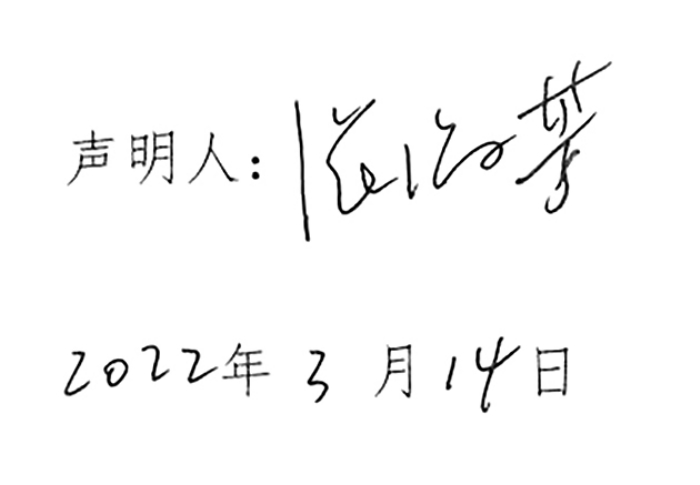 声明人：
2022年3月14日